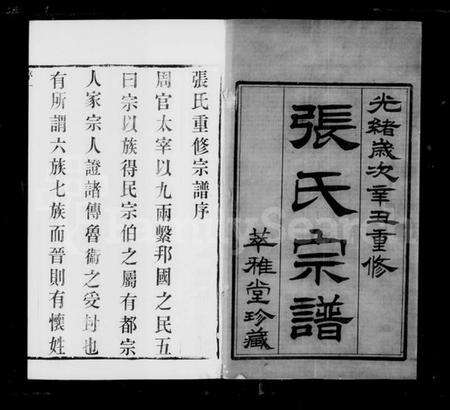 光緒歲次辛丑重修
張氏宗譜
萃雅堂珍藏
張氏重修宗譜序
周官太宰以九兩繫邦國之民五
曰宗以族得民宗伯之屬有都宗
人家宗人證諸傳魯衛之受封也
有所謂六族七族而晉則有懷姓